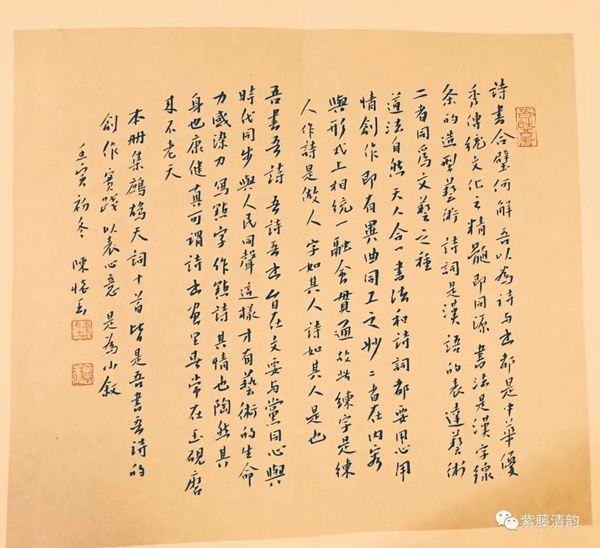 詩書合璧何解 吾以為詩与书都是中華優
秀傳統文化之精髓 即同源 書法是漢字線
条的造型藝術 詩詞是漢語的表達藝術
二者同爲文藝之種
道法自然 天人合一 書法和詩詞都要用心用
情創作 即有異曲同工之妙 二者在内容
與形式上相統一 融會貫通 故此練字是練
人 作詩是做人 字如其人 詩如其人是也
吾書吾詩 吾詩吾书 旨在文要与黨同心 與
時代同步 與人民同聲 這樣才有藝術的生命
力感染力 寫點字 作點詩 其情也陶然 其
身也康健 真可謂 詩出画里春常在 玉硯磨
来不老天
本冊集鷓鴣天詞十首 皆是吾書吾詩的
創作實踐 以表心意 是為小敘
壬寅初冬 陳
紫藤清韵